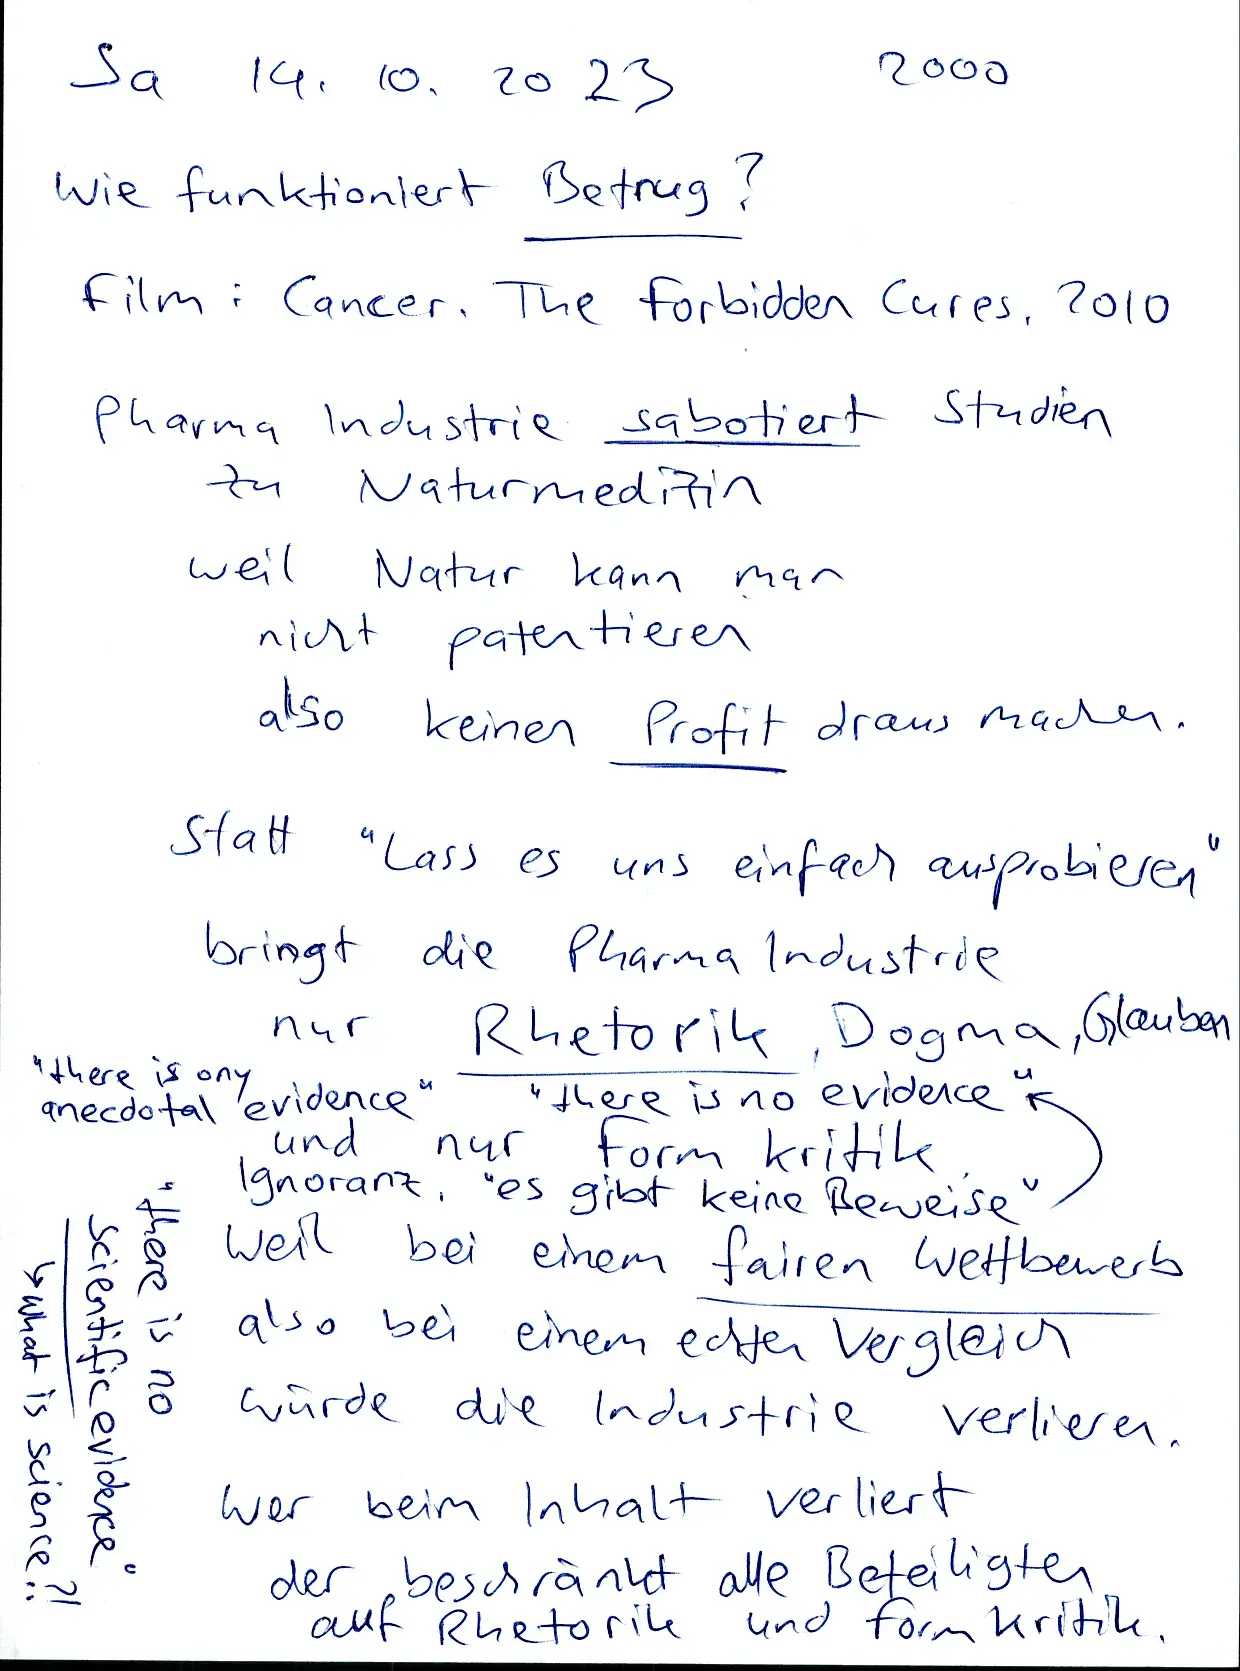 Sa 14. 10. 2023 2000
Wie funktioniert Betrug?
Film: Cancer. The Forbidden Cures, 2010
Pharma Industrie sabotiert Studien
zu Naturmedizin
weil Natur kann man
nicht patentieren
also keinen Profit draus machen.
Statt "Lass es uns einfach ausprobieren"
bringt die Pharma Industrie
nur Rhetorik, Dogma, Glauben
"there is ony
anecdotal evidence" "there is no evidence"
und nur Form kritik.
Ignoranz, "es gibt keine Beweise"
weil bei einem fairen Wettbewerb
also bei einem echten Vergleich
würde die Industrie verlieren.
Wer beim Inhalt verliert
der beschränkt alle Beteiligten
auf Rhetorik und Form kritik.
"there is no
scientific evidence"
↳ what is science?!